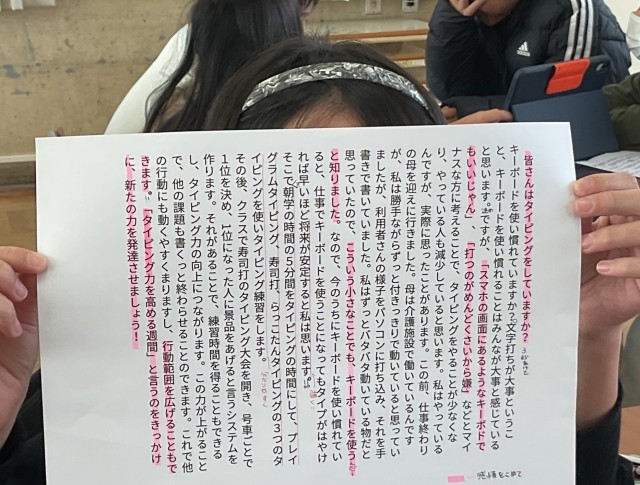 皆さんはタイピングをしていますか？
キーボードを使い慣れていますか？文字打ちが大事というこ
と、キーボードを使い慣れることはみんなが大事と感じている
と思います。ですが、「スマホの画面にあるようなキーボードで
もいいじゃん」、「打つのがめんどくさいから嫌」などとマイ
ナスな方に考えることで、タイピングをやることが少なくな
り、やっている人も減少していると思います。私はやっている
んですが、実際に思ったことがあります。この前、仕事終わり
の母を迎えに行きました。母は介護施設で働いているんです
が、私は勝手ながらずっと付きっきりで動いていると思ってい
ましたが、利用者さんの様子をパソコンに打ち込み、それを手
書きで書いていました。私はずっとバタバタ動いている物だと
思っていたので、こういう小さなことでも、キーボードを使うだ
と知りました。なので、今のうちにキーボードを使い慣れてい
ると、仕事でキーボードを使うことになってもタイプがはやけ
れば早いほど将来が安定すると私は思います。
そこで朝学の時間の５分間をタイピングの時間にして、プレイ
グラムタイピング、寿司打、らっこたんタイピングの３つのタ
イピングを使いタイピング練習をします。
その後、クラスで寿司打のタイピング大会を開き、号車ごとで
１位を決め、一位になった人に景品をあげると言うシステムを
作ります。それがあることで、練習時間を得ることもできる
し、タイピング力の向上につながります。この力が上がること
で、他の課題も書くっと終わらせることのできます。これで他
の行動にも動くやすくまりますし、行動範囲を広げることもで
きます。「タイピング力を高める週間」と言うのをきっかけ
に、新たの力を発達させましょう！
感情をこめて
adidas